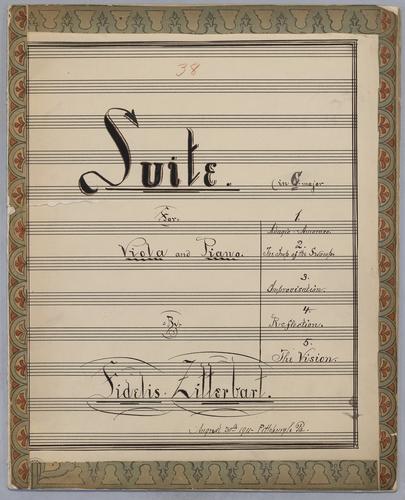 38
Suite.
(in C major
For
Viola and Piano.
1.
Adagio Amoroso.
2.
The Imp of the Swamp.
3.
Improvisation.
4.
Reflection.
5.
The Vision.
By
Fidelis Zitterbart.
August 1911 Pittsburgh Pa.